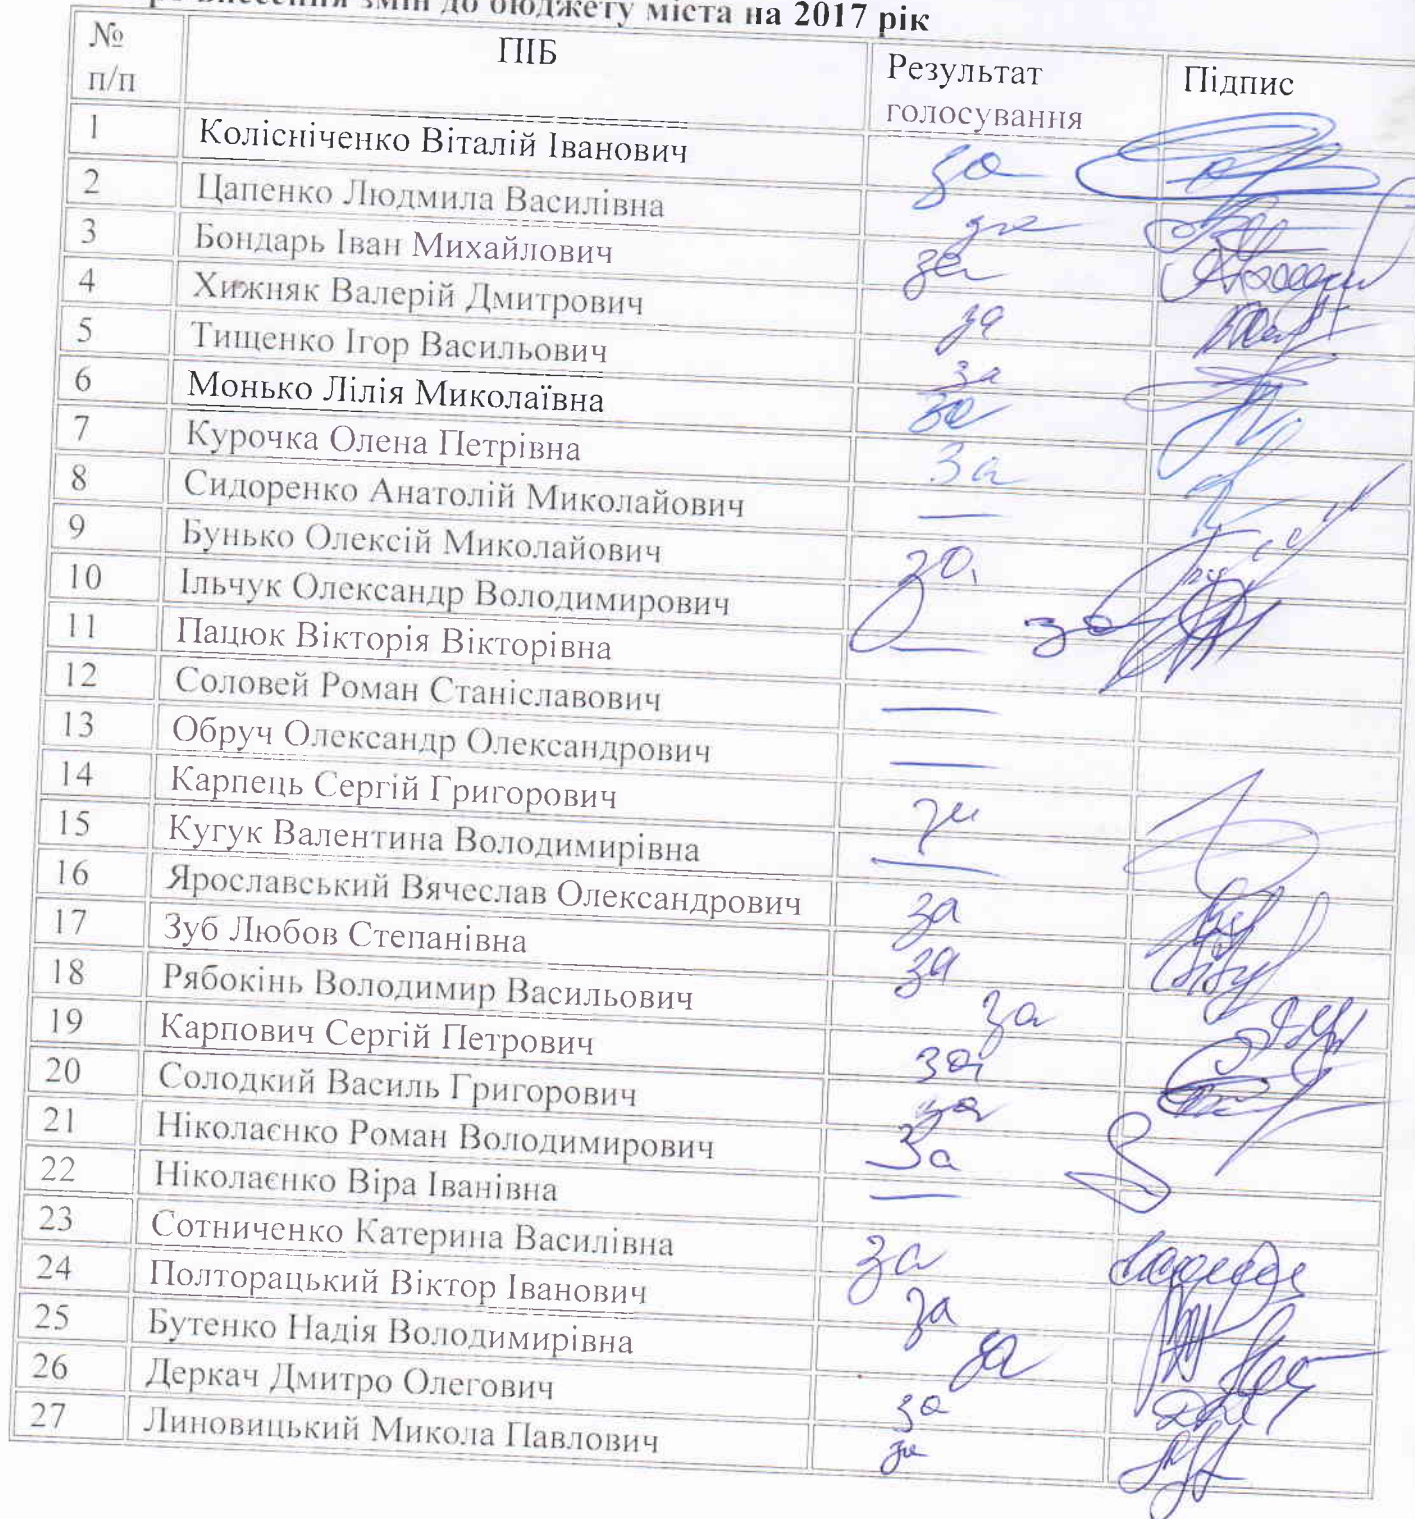 внесення змін до бюджету міста на 2017 рік
№ п/п ПІБ Результат голосування Підпис
1 Колісніченко Віталій Іванович за
2 Цапенко Людмила Василівна за
3 Бондарь Іван Михайлович за
4 Хижняк Валерій Дмитрович за
5 Тищенко Ігор Васильович за
6 Монько Лілія Миколаївна за
7 Курочка Олена Петрівна за
8 Сидоренко Анатолій Миколайович —
9 Бунько Олексій Миколайович за
10 Ільчук Олександр Володимирович за
11 Пацюк Вікторія Вікторівна —
12 Соловей Роман Станіславович —
13 Обруч Олександр Олександрович —
14 Карпець Сергій Григорович за
15 Кугук Валентина Володимирівна —
16 Ярославський Вячеслав Олександрович за
17 Зуб Любов Степанівна за
18 Рябокінь Володимир Васильович за
19 Карпович Сергій Петрович за
20 Солодкий Василь Григорович за
21 Ніколаєнко Роман Володимирович За
22 Ніколаєнко Віра Іванівна —
23 Сотниченко Катерина Василівна за
24 Полторацький Віктор Іванович за
25 Бутенко Надія Володимирівна за
26 Деркач Дмитро Олегович за
27 Линовицький Микола Павлович за